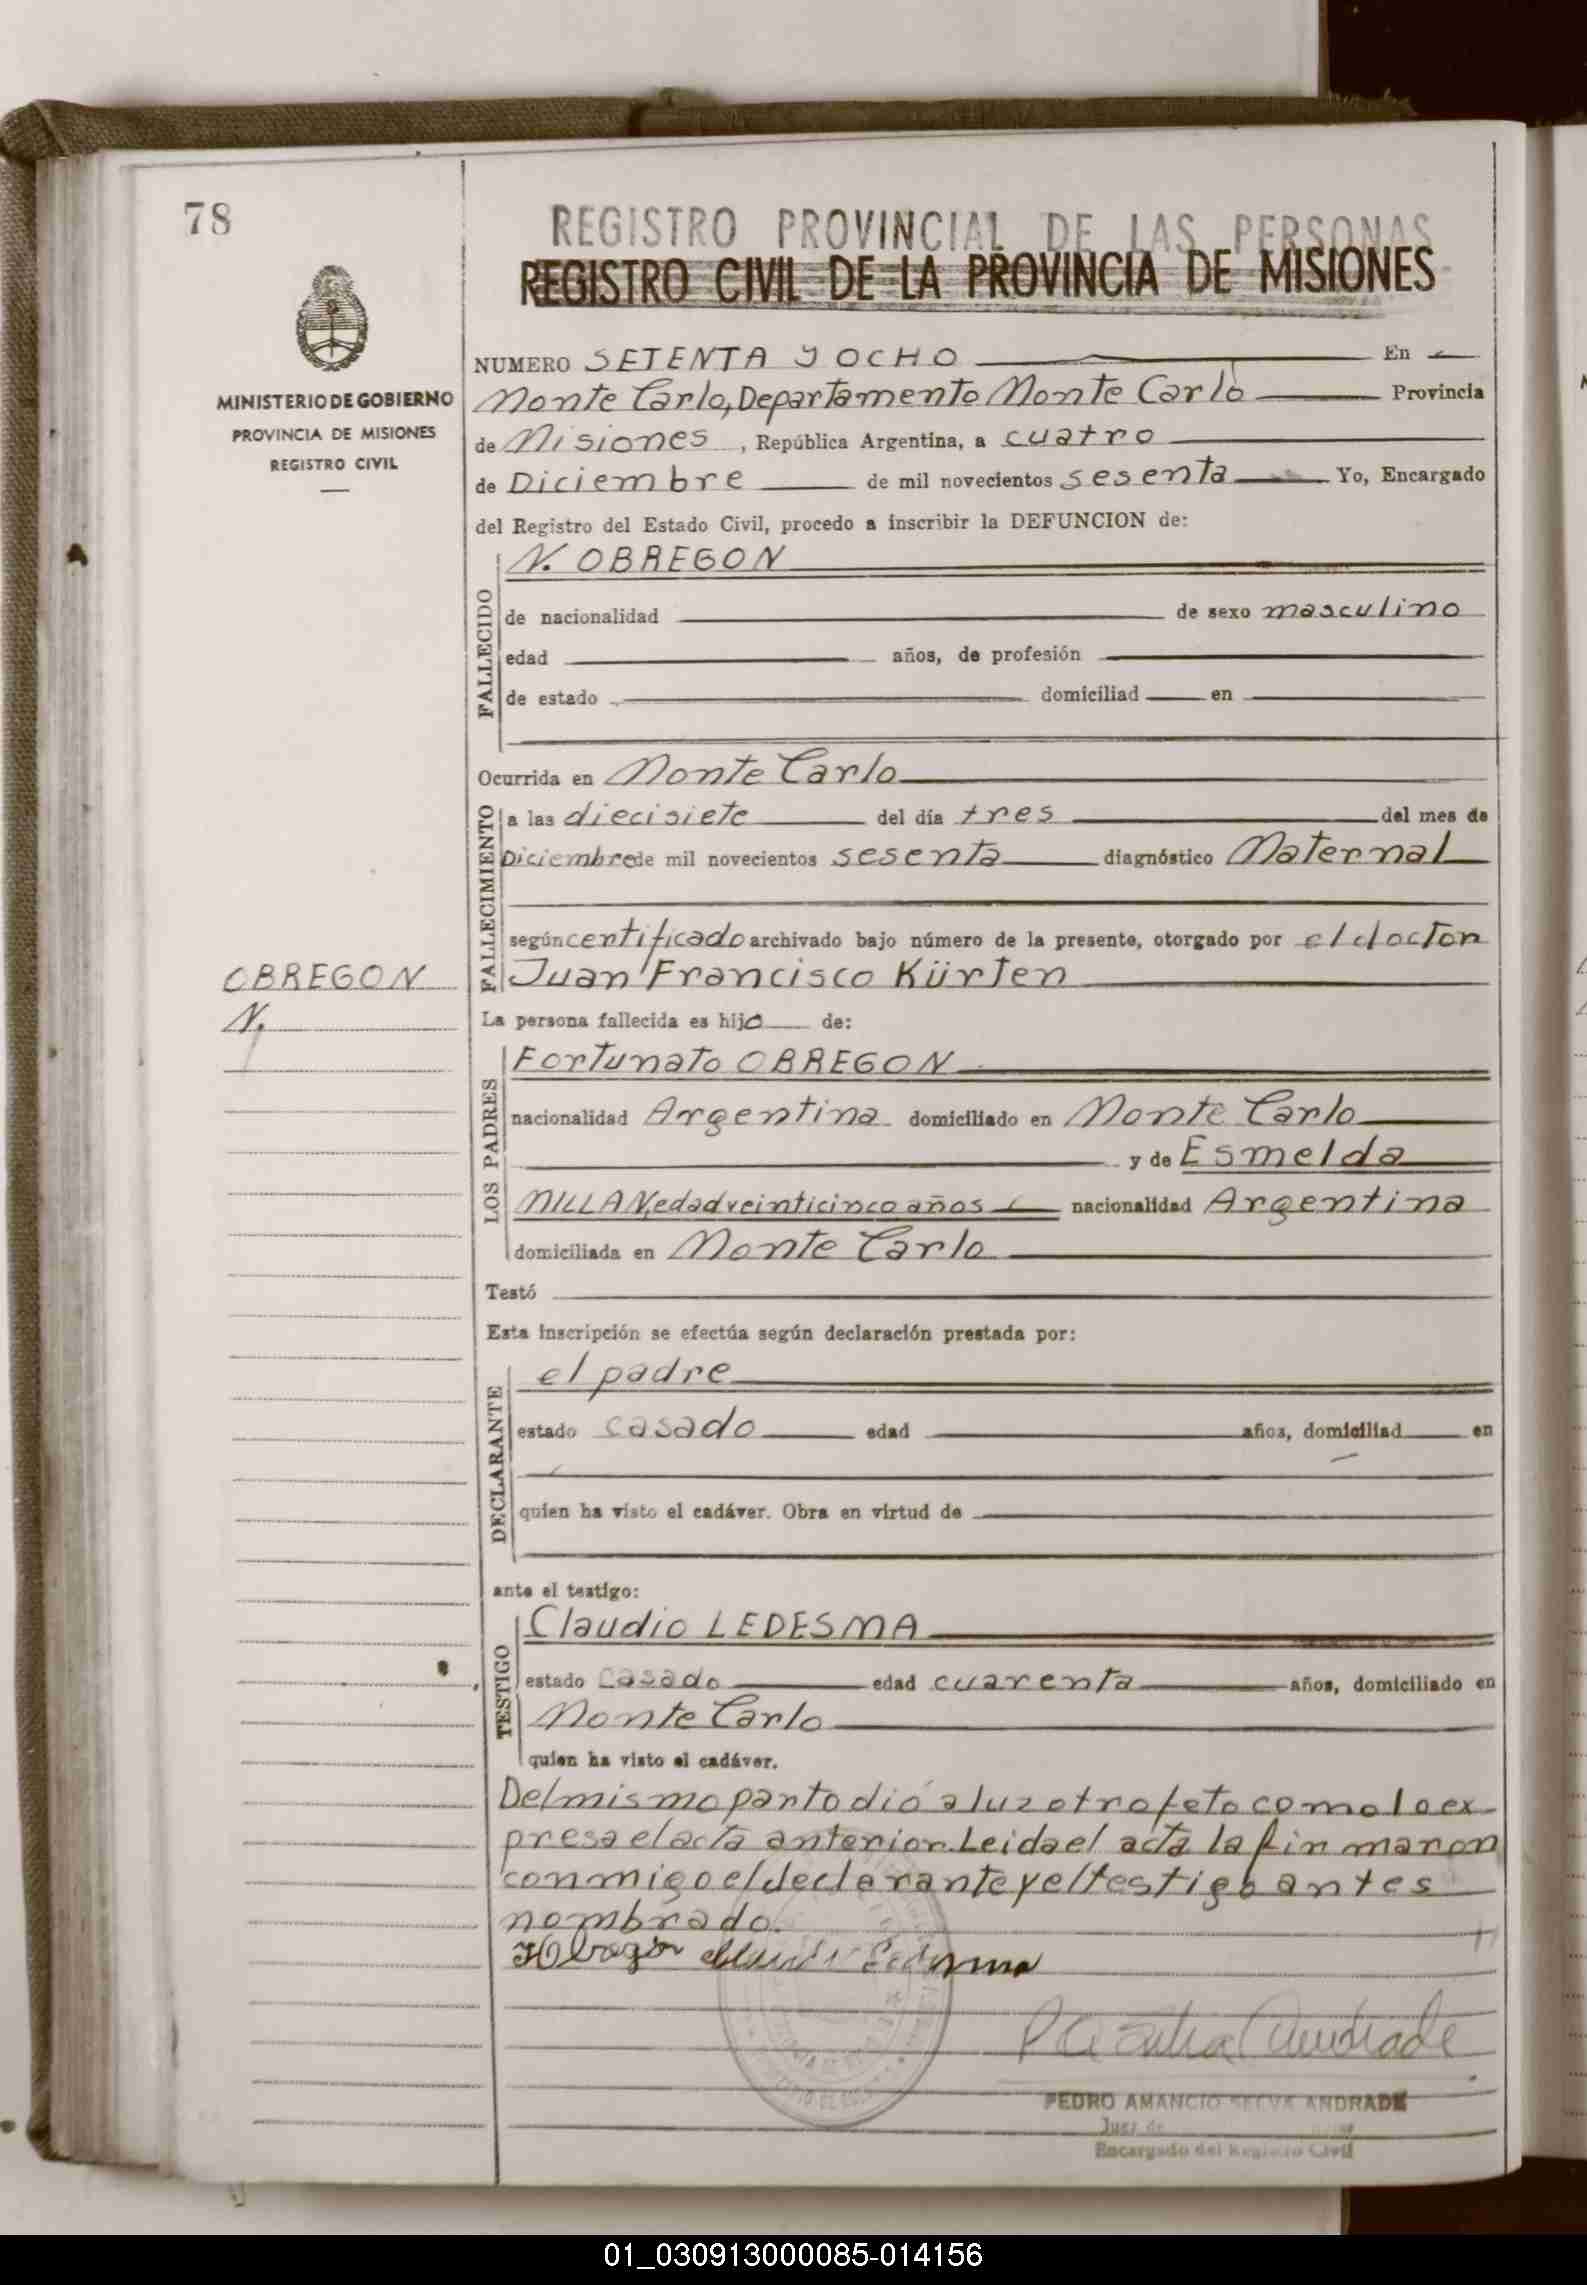 78
REGISTRO PROVINCIAL DE LAS PERSONAS
REGISTRO CIVIL DE LA PROVINCIA DE MISIONES
MINISTERIO DE GOBIERNO
PROVINCIA DE MISIONES
REGISTRO CIVIL
NUMERO SETENTA Y OCHO En
Monte Carlo, Departamento Monte Carlo Provincia
de Misiones, República Argentina, a cuatro
de Diciembre de mil novecientos sesenta Yo, Encargado
del Registro del Estado Civil, procedo a inscribir la DEFUNCION de:
FALLECIDO
N. OBREGON
de nacionalidad de sexo masculino
edad años, de profesión
de estado domiciliad en
Ocurrida en Monte Carlo
FALLECIMIENTO
a las diecisiete del día tres del mes de
Diciembre de mil novecientos sesenta diagnóstico Maternal
según certificado archivado bajo número de la presente, otorgado por el doctor
Juan Francisco Kürten
OBREGON
N.
La persona fallecida es hijo de:
LOS PADRES
Fortunato OBREGON
nacionalidad Argentina domiciliado en Monte Carlo
y de Esmelda
MILLAN, edad veinticinco años nacionalidad Argentina
domiciliada en Monte Carlo
Testó
Esta inscripción se efectúa según declaración prestada por:
DECLARANTE
el padre
estado casado edad años, domiciliad en
quien ha visto el cadáver. Obra en virtud de
ante el testigo:
TESTIGO
Claudio LEDESMA
estado casado edad cuarenta años, domiciliado en
Monte Carlo
quien ha visto el cadáver.
Del mismo parto dió a luz otro feto como lo ex
presa el acta anterior. Leida el acta la firmaron
conmigo el declarante y el testigo antes
nombrado.
Obregon Claudio Ledesma
Andrade
PEDRO AMANCIO SELVA ANDRADE
Juez de
Encargado del Registro Civil
01_030913000085-014156